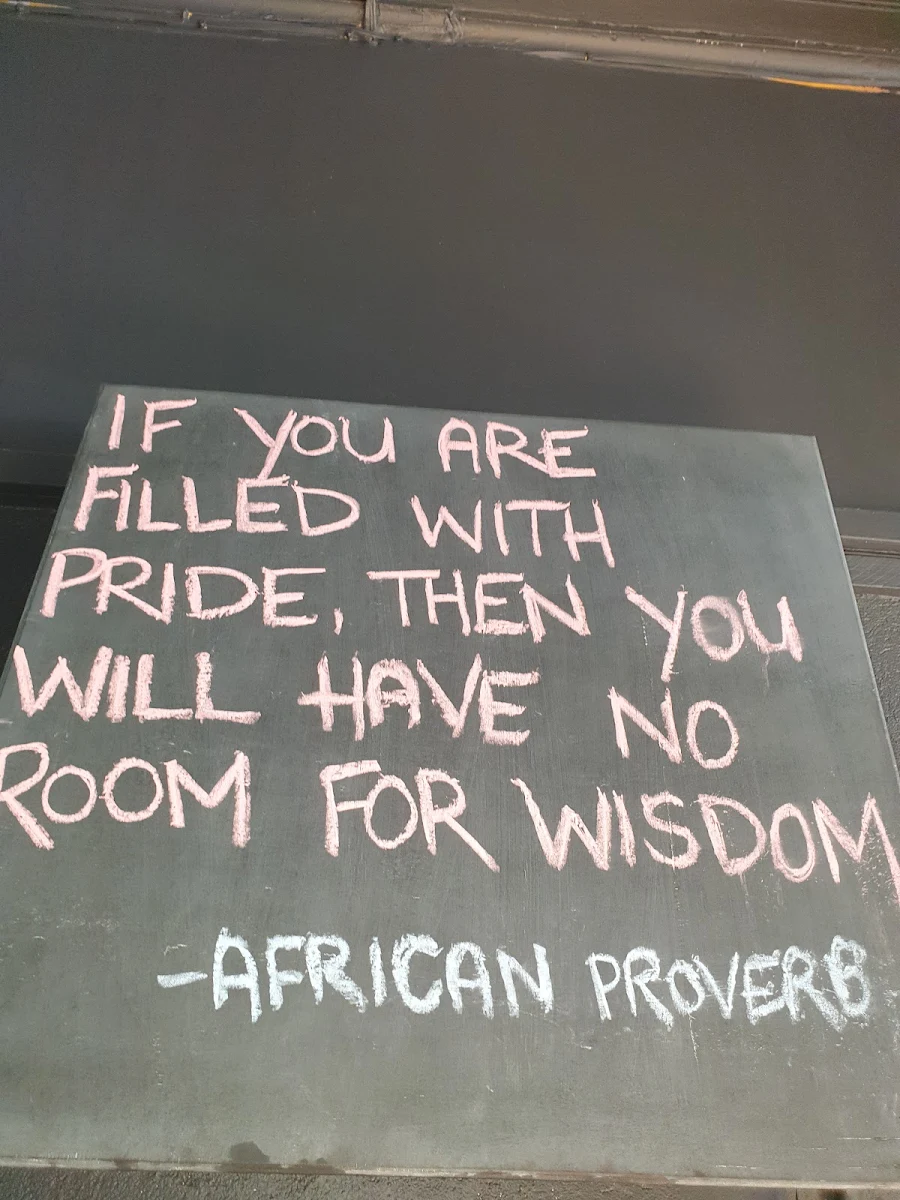 IF YOU ARE
FILLED WITH
PRIDE, THEN YOU
WILL HAVE NO
ROOM FOR WISDOM
-AFRICAN PROVERB